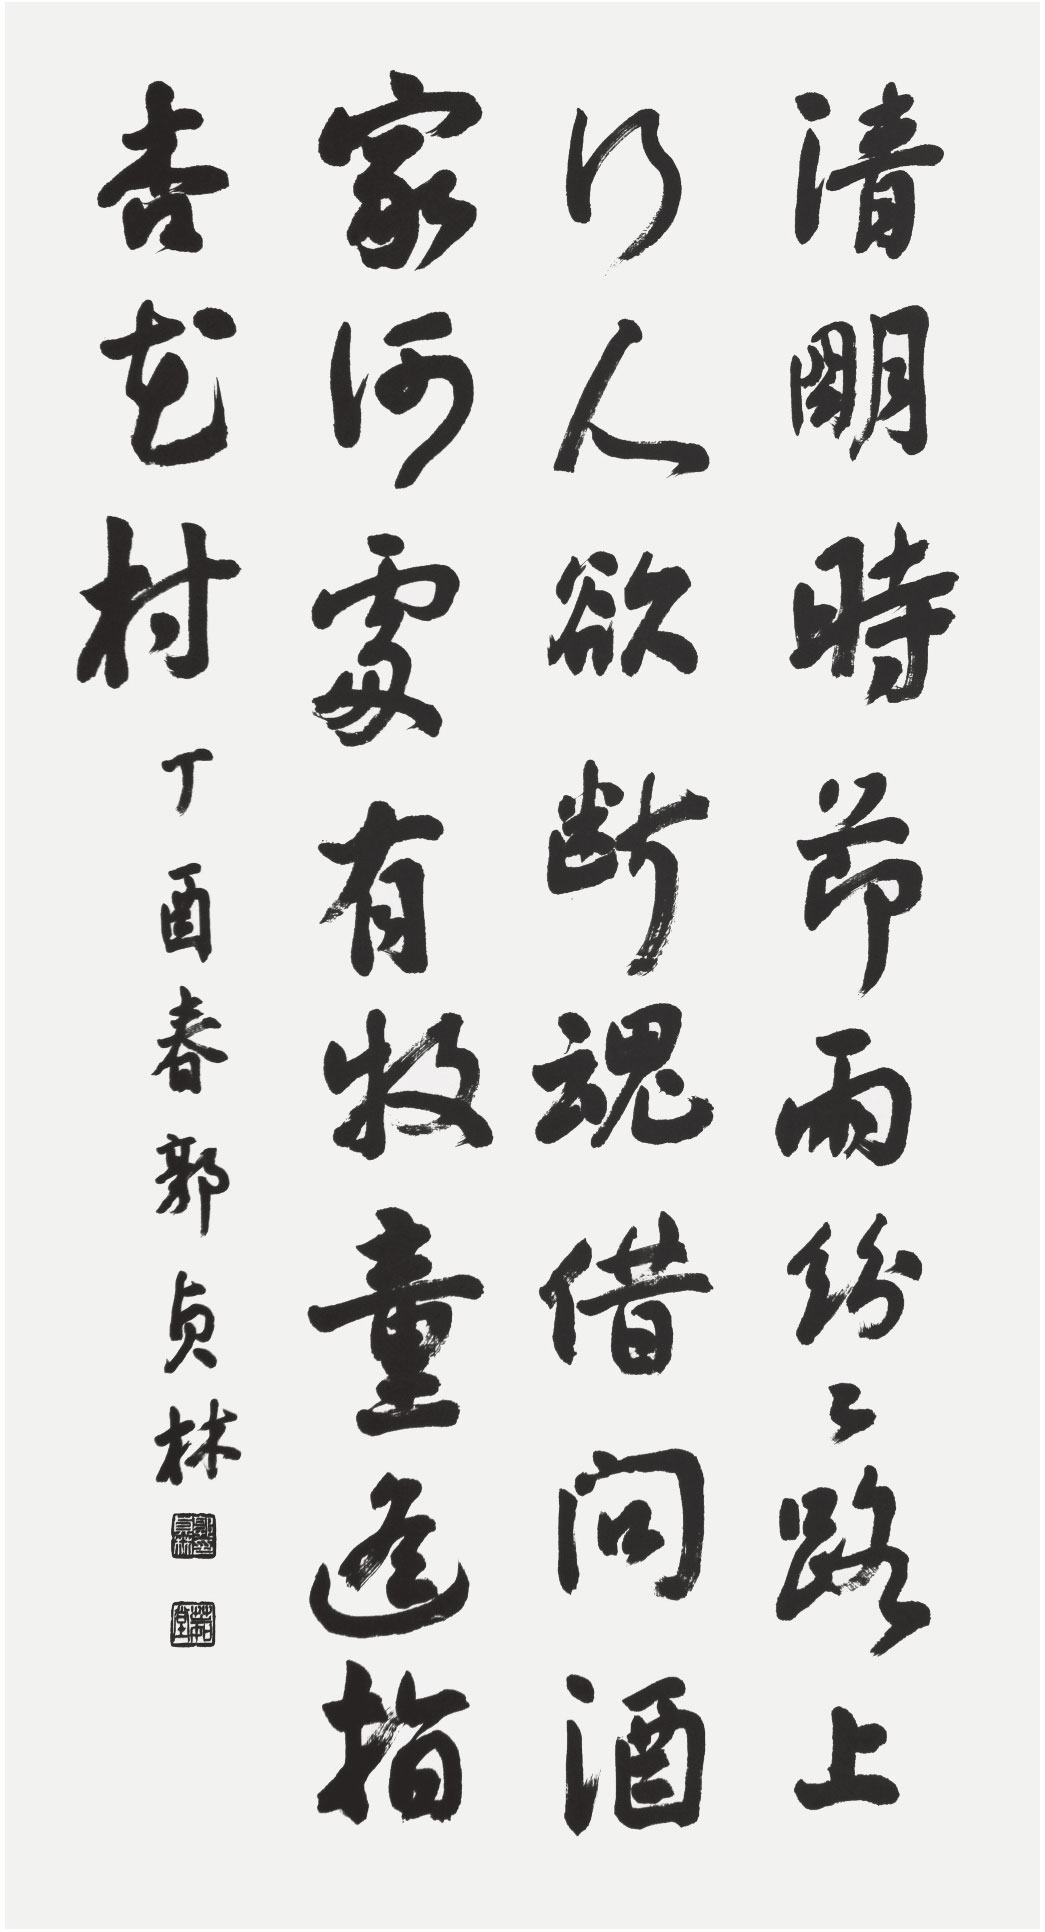 清明時節雨紛〻路上
行人欲斷魂借問酒
家何處有牧童遙指
杏花村
丁酉春郭貞林